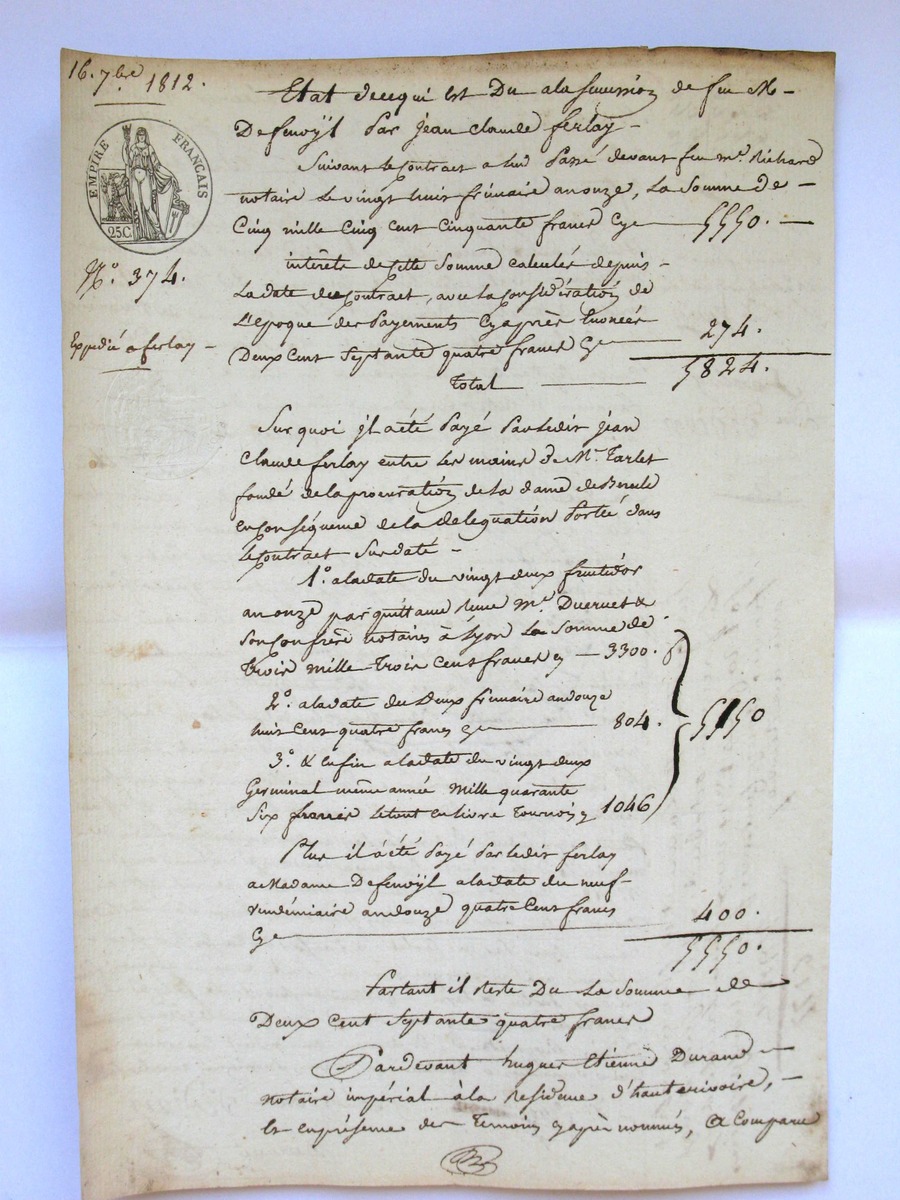 16. 7bre 1812.
EMPIRE FRANÇAIS
25C.
N.º 374.
Expédié a ferlay —
Etat de cequi est Du ala sucession de feu M. —
Defenoÿl Par jean Claude ferlay —
Suivant le Contract a lui Passé devant feu me. Richard
notaire le vingt huit frimaire an onze, La Somme De —
Cinq mille Cinq Cent Cinquante francs Cy 5550. —
interêts de cette Somme calculés depuis —
La date du Contract, avec la Considération de
L'epoque des Payements Cyaprès Enoncés
Deux Cent Septante quatre francs Cy 274.
Total 5824.
Sur quoi jl a été Payé Par ledit jean
Claude ferlay entre les mains de Mr. Tarlet
fondé de la procuration de la dame de
en Conséquence de la déléguation Portée dans
le Contract Sus daté —
1.º ala date du vingt deux fructidor
an onze par quittance Reçue Me. &
Son Confrère notaires à Lyon La Somme de
trois mille trois Cent francs cy — 3300.
2.º a la date du Deux frimaire an douze
huit Cent quatre francs cy 804.
5150
3.º & Enfin a la date du vingt deux
Germinal même année Mille quarante
Six francs le tout en livre Tournois cy 1046
Plus il a été Payé Par ledit ferlay
a Madame Defenoÿl a la date du neuf
vendémiaire an douze quatre Cent francs
Cy 400.
5550.
Partant il Reste Du La Somme de
Deux Cent Septante quatre francs
Pardevant hugues Etienne Durand —
notaire impérial à la Residence d'hauterivoire, —
Et en présence des Temoins cyaprès nommés, a Comparu